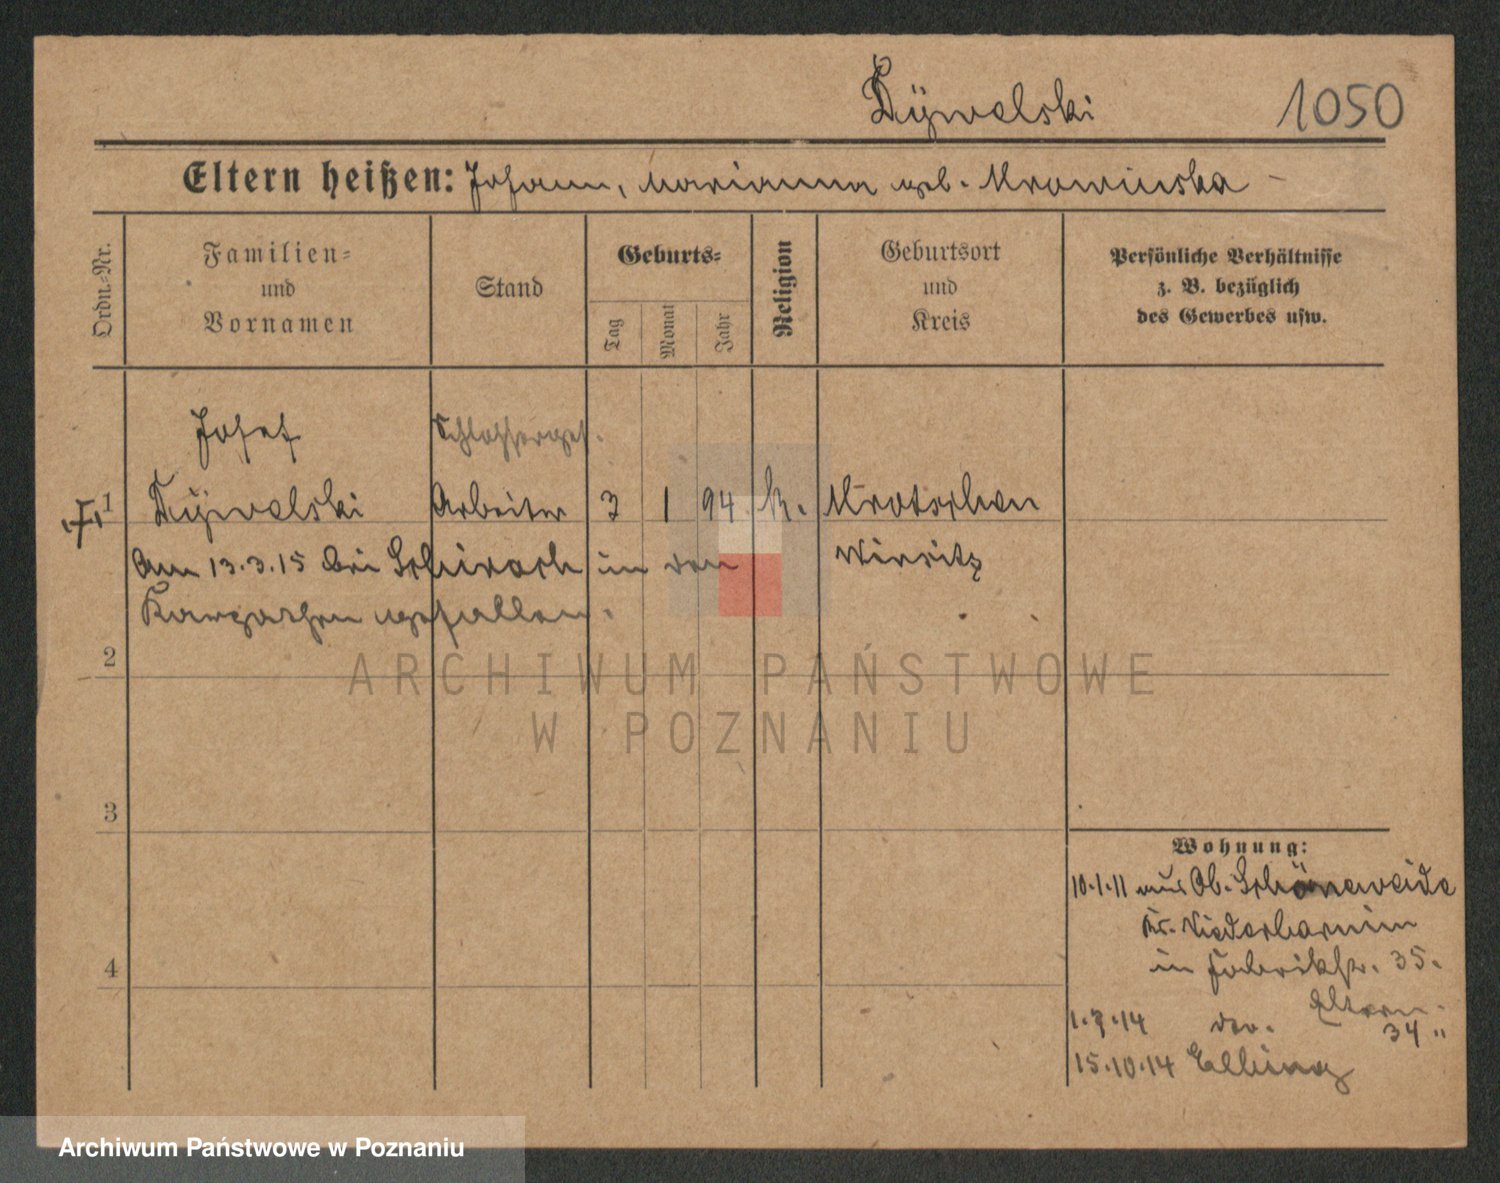 Dÿwelski 1050
Eltern heißen: Johann, Marianna geb. Mrowinska
Ordn.-Nr.
Familien-
und
Vornamen
Stand
Geburts-
Tag
Monat
Jahr
Religion
Geburtsort
und
Kreis
Persönliche Verhältnisse
z. B. bezüglich
des Gewerbes usw.
Josef Schlosserges.
1 Dÿwelski Arbeiter 3 1 94. k. Mrotschen
Am 13.3.15 bei in den Wirsitz
Karpathen gefallen.
2
ARCHIWUM PAŃSTWOWE
W POZNANIU
3
4
Wohnung:
10.1.11 aus Ob. Schöneweide
Kr. Niederbarnim
in Fabrikstr. 35.
Eltern.
1.7.14 34 "
15.10.14 Elbing
Archiwum Państwowe w Poznaniu